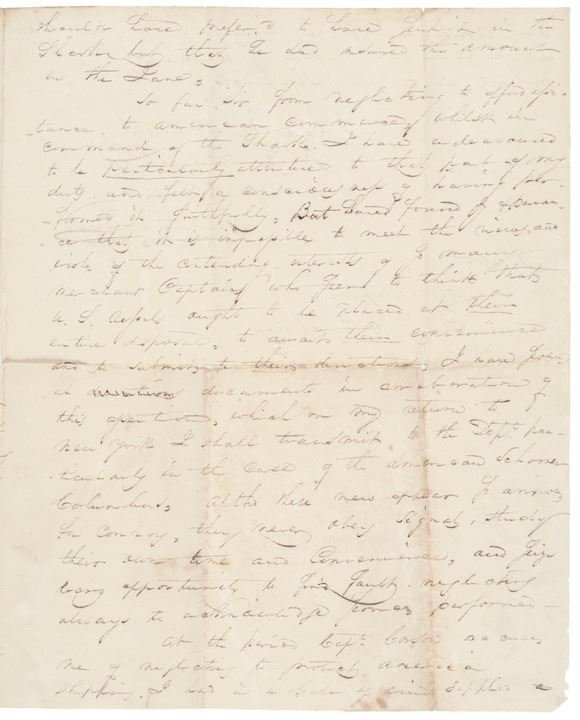 should have prefer'd to have in the
Shark but that he had insured the amount
in the Jane.
So far Sir from neglecting to afford assis-
-tance to american commerce whilst in
command of the Shark. I have endeavoured
to be particularly attentive to that part of my
duty and feel a consciousness of having per-
-formed it faithfully. But have found
that it is impossible to meet the views and
wishes of the contending interests of so many
merchant Captains who seem to think that
U. S. Vessels ought to be placed at their
entire disposal, to await their convenience
and to submit to their directions. I have
documents in corroboration of
this assertion, which on my return to
New York I shall transmit to the Dept. par-
-ticularly in the case of the american Schooner
Columbus, altho these men appear so anxious
for convoy, they never obey signals, study
their own time and convenience, and seize
every opportunity to find fault. neglecting
always to acknowledge favors performed—
At the period Capt. accuses
me of neglecting to protect america
shipping. I had in a gale of wind supplied a